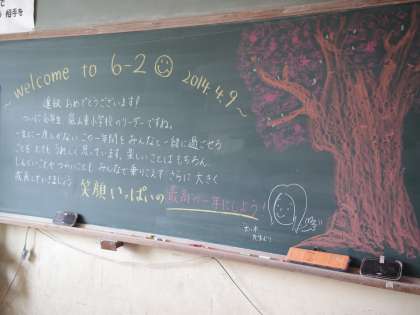 相手を
～welcome to 6-2 2014.4.9～
進級おめでとうございます!
ついに6年生 小学校のリーダーですね。
一生に一度しかないこの一年間をみんなと一緒に過ごせる
ことをとてもうれしく思っています。楽しいことはもちろん
しんどいこともつらいことも みんなで乗りこえて さらに大きく
成長していきましょう
笑顔いっぱいの最高の一年にしよう!